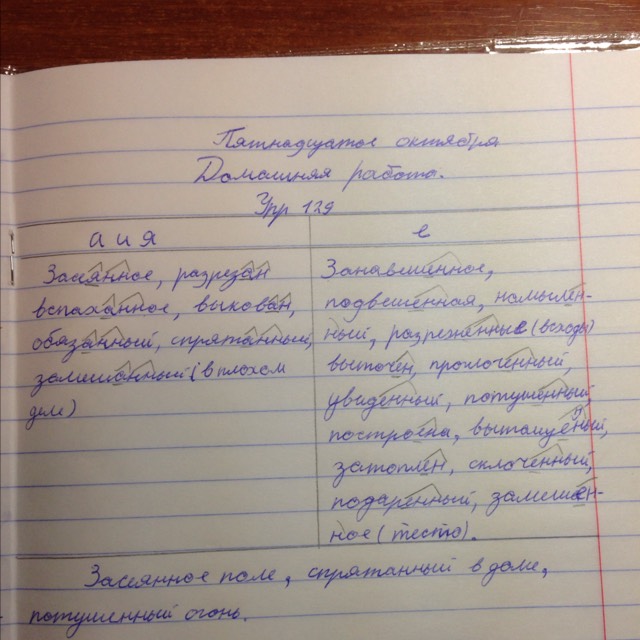 Пятнадцатое октября
Домашняя работа.
Упр 129
а и я
е
Засеянное, разрезан
вспаханное, выкован,
обязанный, спрятанный,
замешанный (в плохом
деле)
Занавешенное,
подвешенная, намылен-
ный, разреженные (всходы)
выточен, проточенный,
увиденный, потушенный,
построена, вытащенный,
затоплен, склоченный,
подаренный, замешен-
ное (тесто).
Засеянное поле, спрятанный в доме,
потушенный огонь.